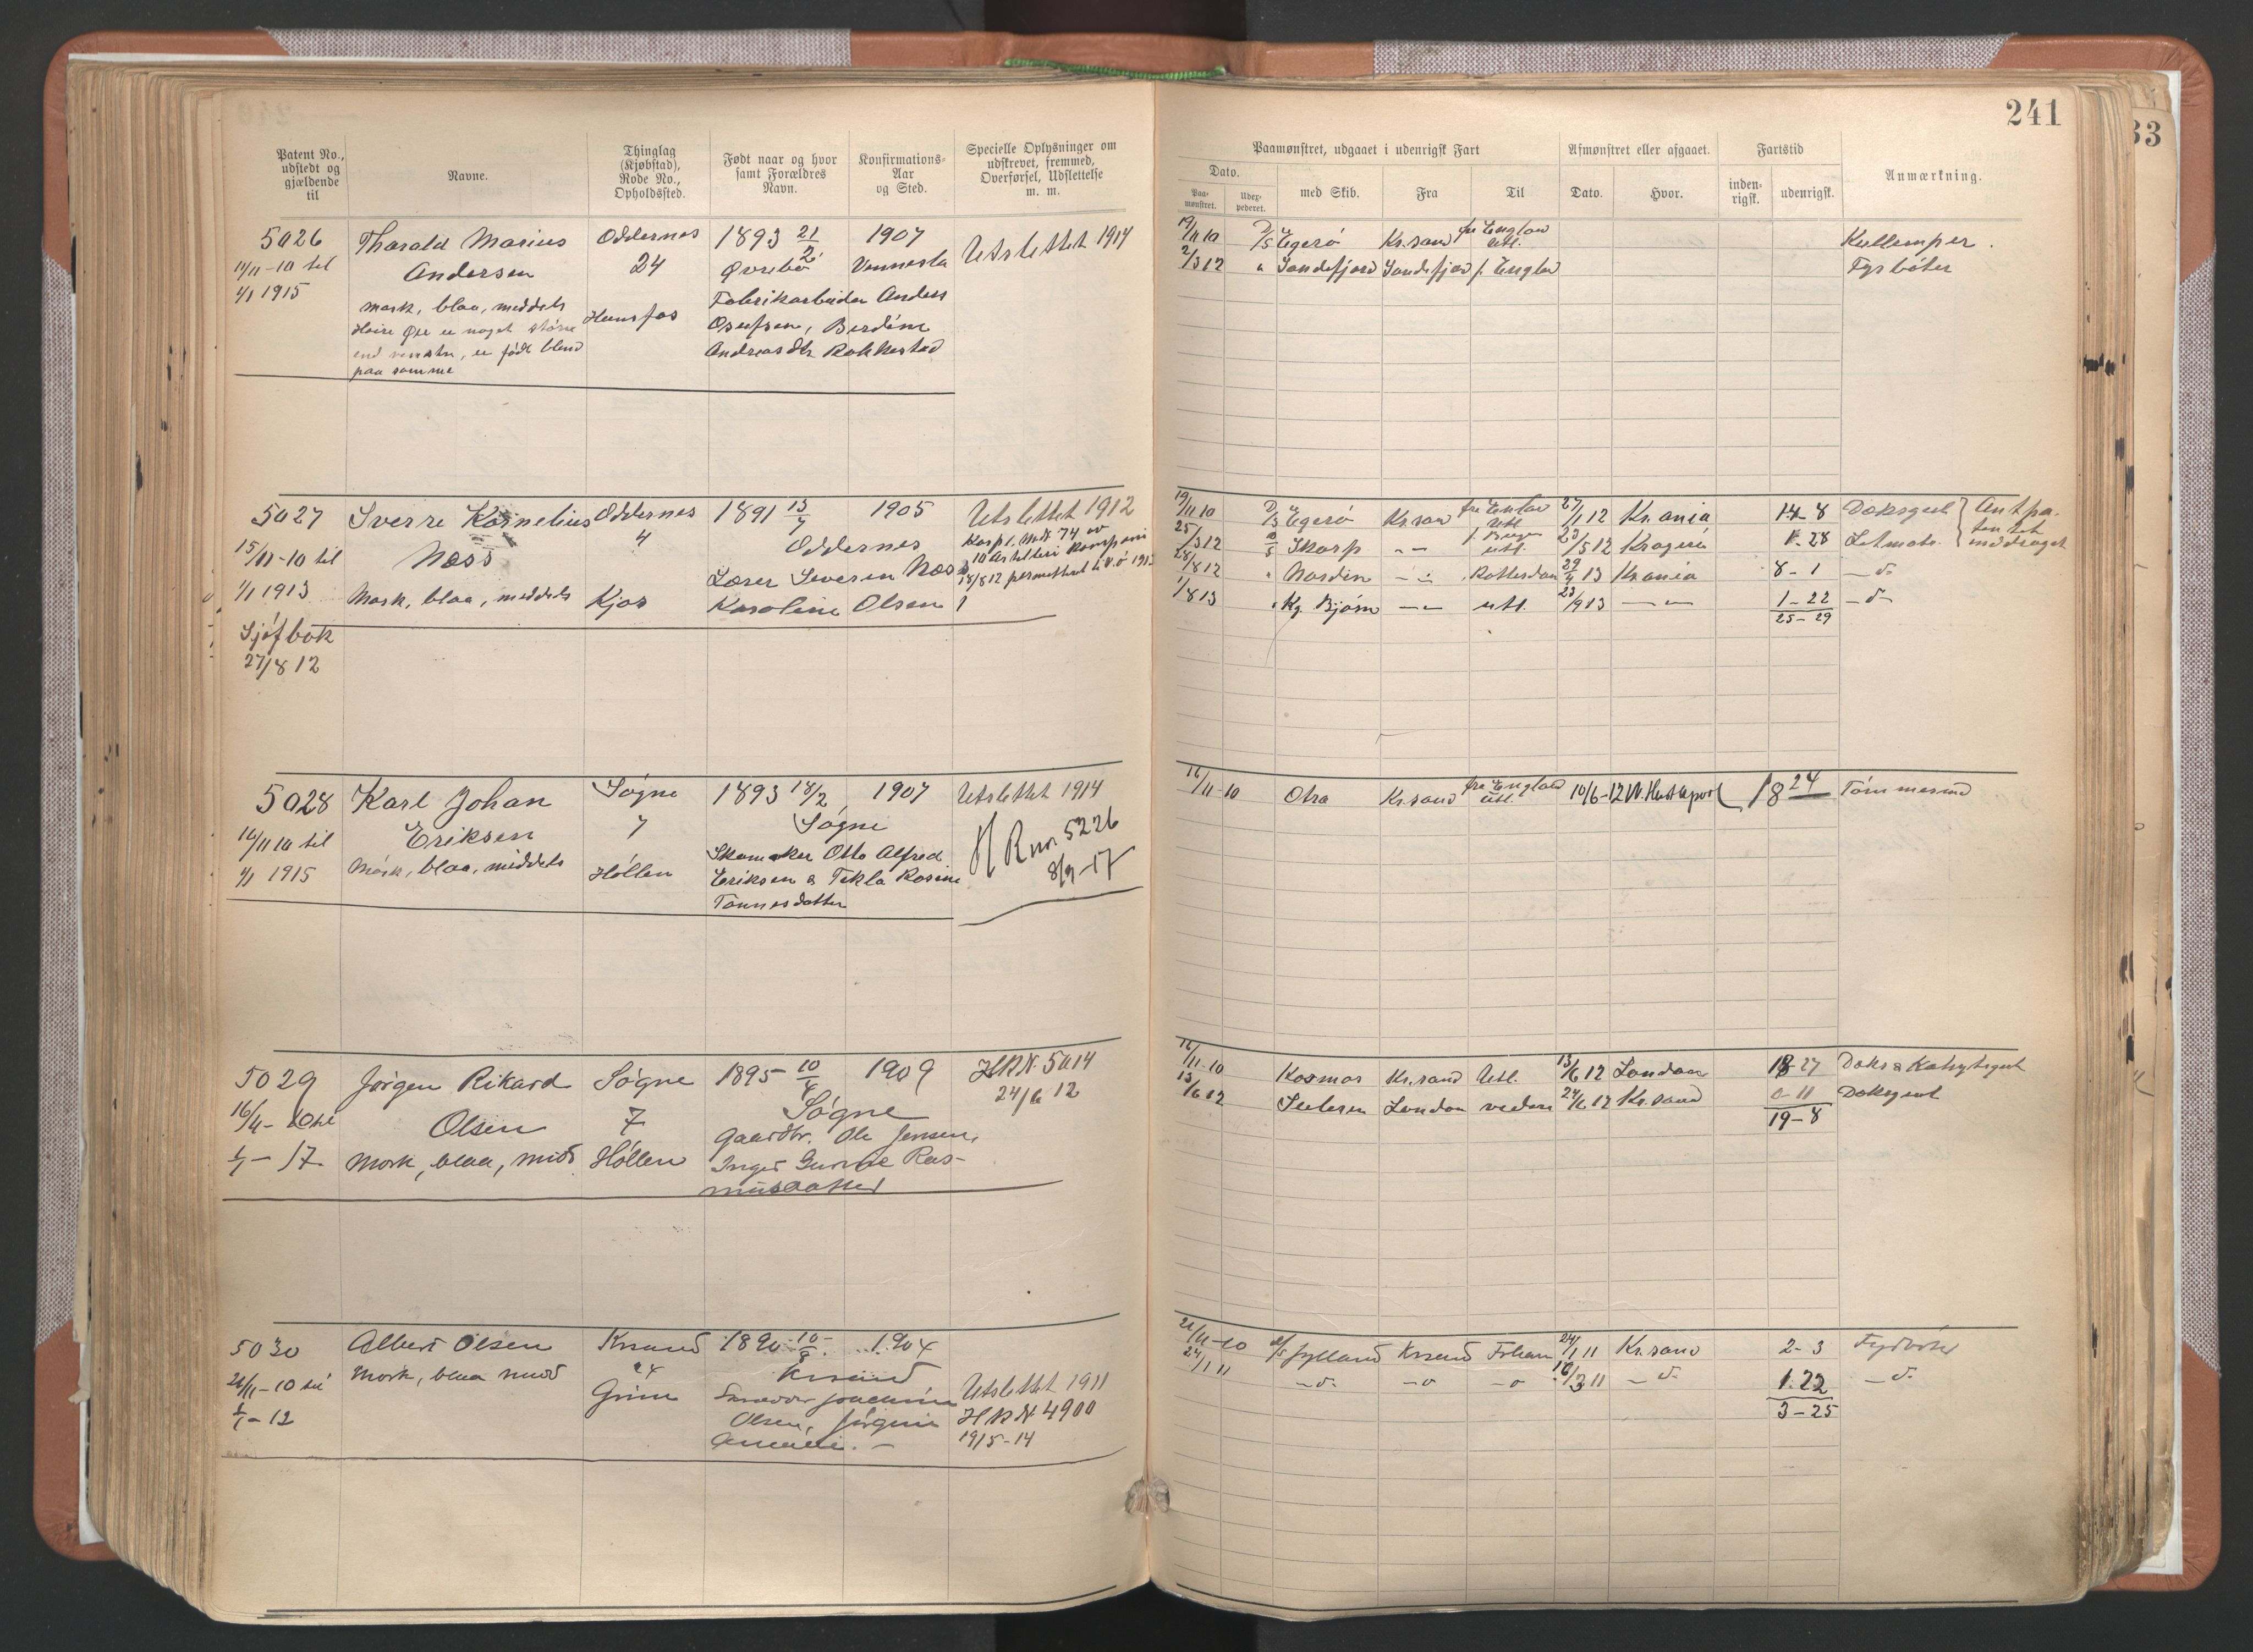 241
33
Patent No., udstedt og gjældende til
Navne.
Thinglag (Kjøbstad), Rode No., Opholdssted.
Født naar og hvor samt Forældres Navn.
Konfirmations-Aar og Sted.
Specielle Oplysninger om udskrevet, fremmed, Overførsel, Udslettelse m. m.
Paamønstret, udgaaet i udenrigsk Fart
Afmønstret eller afgaaet.
Fartstid
Anmærkning.
Dato.
Paa-mønstret.
Udex-pederet.
med Skib.
Fra
Til
Dato.
Hvor.
inden-rigsk.
udenrigsk.
5026 Tharald Marius Oddernes 1893 21/2 1907 Utslettet 1914
11/11-10 til Andersen 24 Øvrebø Vennesla
1/1 1915
mørk, blaa, middels Hunsfos Fabrikarbeider Anders
Høire Øre er noget større Osufsen, Berdine
end venstre, er født blind Andreasdtr Rokkestad
paa samme
19/11 10 D/S Egerø Kr.sand fra England Utl. Kullemper.
2/3 12 " Sandefjord Sandefjord f. England Fyrbøter
5027 Sverre Kornelius Oddernes 1891 13/7 1905 Utslettet 1912
15/11-10 til Næss 4 Oddernes Korpl. M.N. 74 av
1/1 1913 10 Artilleri Kompani
Mørk, blaa, middels Kjos Lærer Severin Næss 18/8 12 permittert til V.Ø 1913
Sjøfbok Karoline Olsen
27/8 12
19/11 10 D/S Egerø Kr.sand Utl. 27/1 12 Kr.ania 14-8 Dæksgut Ant pa-
25/3 12 Skarp -"- utl. 23/5 12 Kragerø 1-28 Letmatr. tentet
28/8 12 " Norden -"- Rotterdam 29/4 13 Kr.ania 8-1 -d- inddraget
1/8 13 " Kg. Bjørn -"- utl. 23/9 13 -"- 1-22 -d-
25-29
5028 Karl Johan Søgne 1893 18/2 1907 Utslettet 1914
16/11 10 til Eriksen 7 Søgne
1/1 1915 Mørk, blaa, middels Høllen Skomaker Otto Alfred
Eriksen & Tekla Rosine
Tønnesdatter
H R nr. 5226
8/9-17
16/11 10 Otra Kr.sand fra England Utl. 10/6-12 W. Hartlepool 18 24 Tømmermand
5029 Jørgen Rikard Søgne 1895 10/4 1909 H R N. 5014
16/11-10 til Olsen 7 Søgne 24/6 12
1/1-17 Mørk, blaa, mid Høllen Gaardbr. Ole Jensen,
Inger Gurine Ras-
musdatter
16/11-10 Kosmos Kr.sand Utl. 13/6 12 London 18-27 Dæks & Kahytsgut
13/6 12 London videre 24/6 12 Kr.sand 0-11 Dæksgut
19-8
5030 Albert Olsen Krsand 1890 10/8 1904
21/11-10 til Mørk, blaa mid 24 Krsand
1/1-12 Grim Joachim
Olsen, Jørgine
Utslettet 1911
H R N 4900
1915-14
21/11-10 D/S Jylland Krsand 24/1 11 Kr.sand 2-3 Fyrbøter
24/1 11 -d- -o -o 18/3 11 -d- 1.22 -d-
3-25